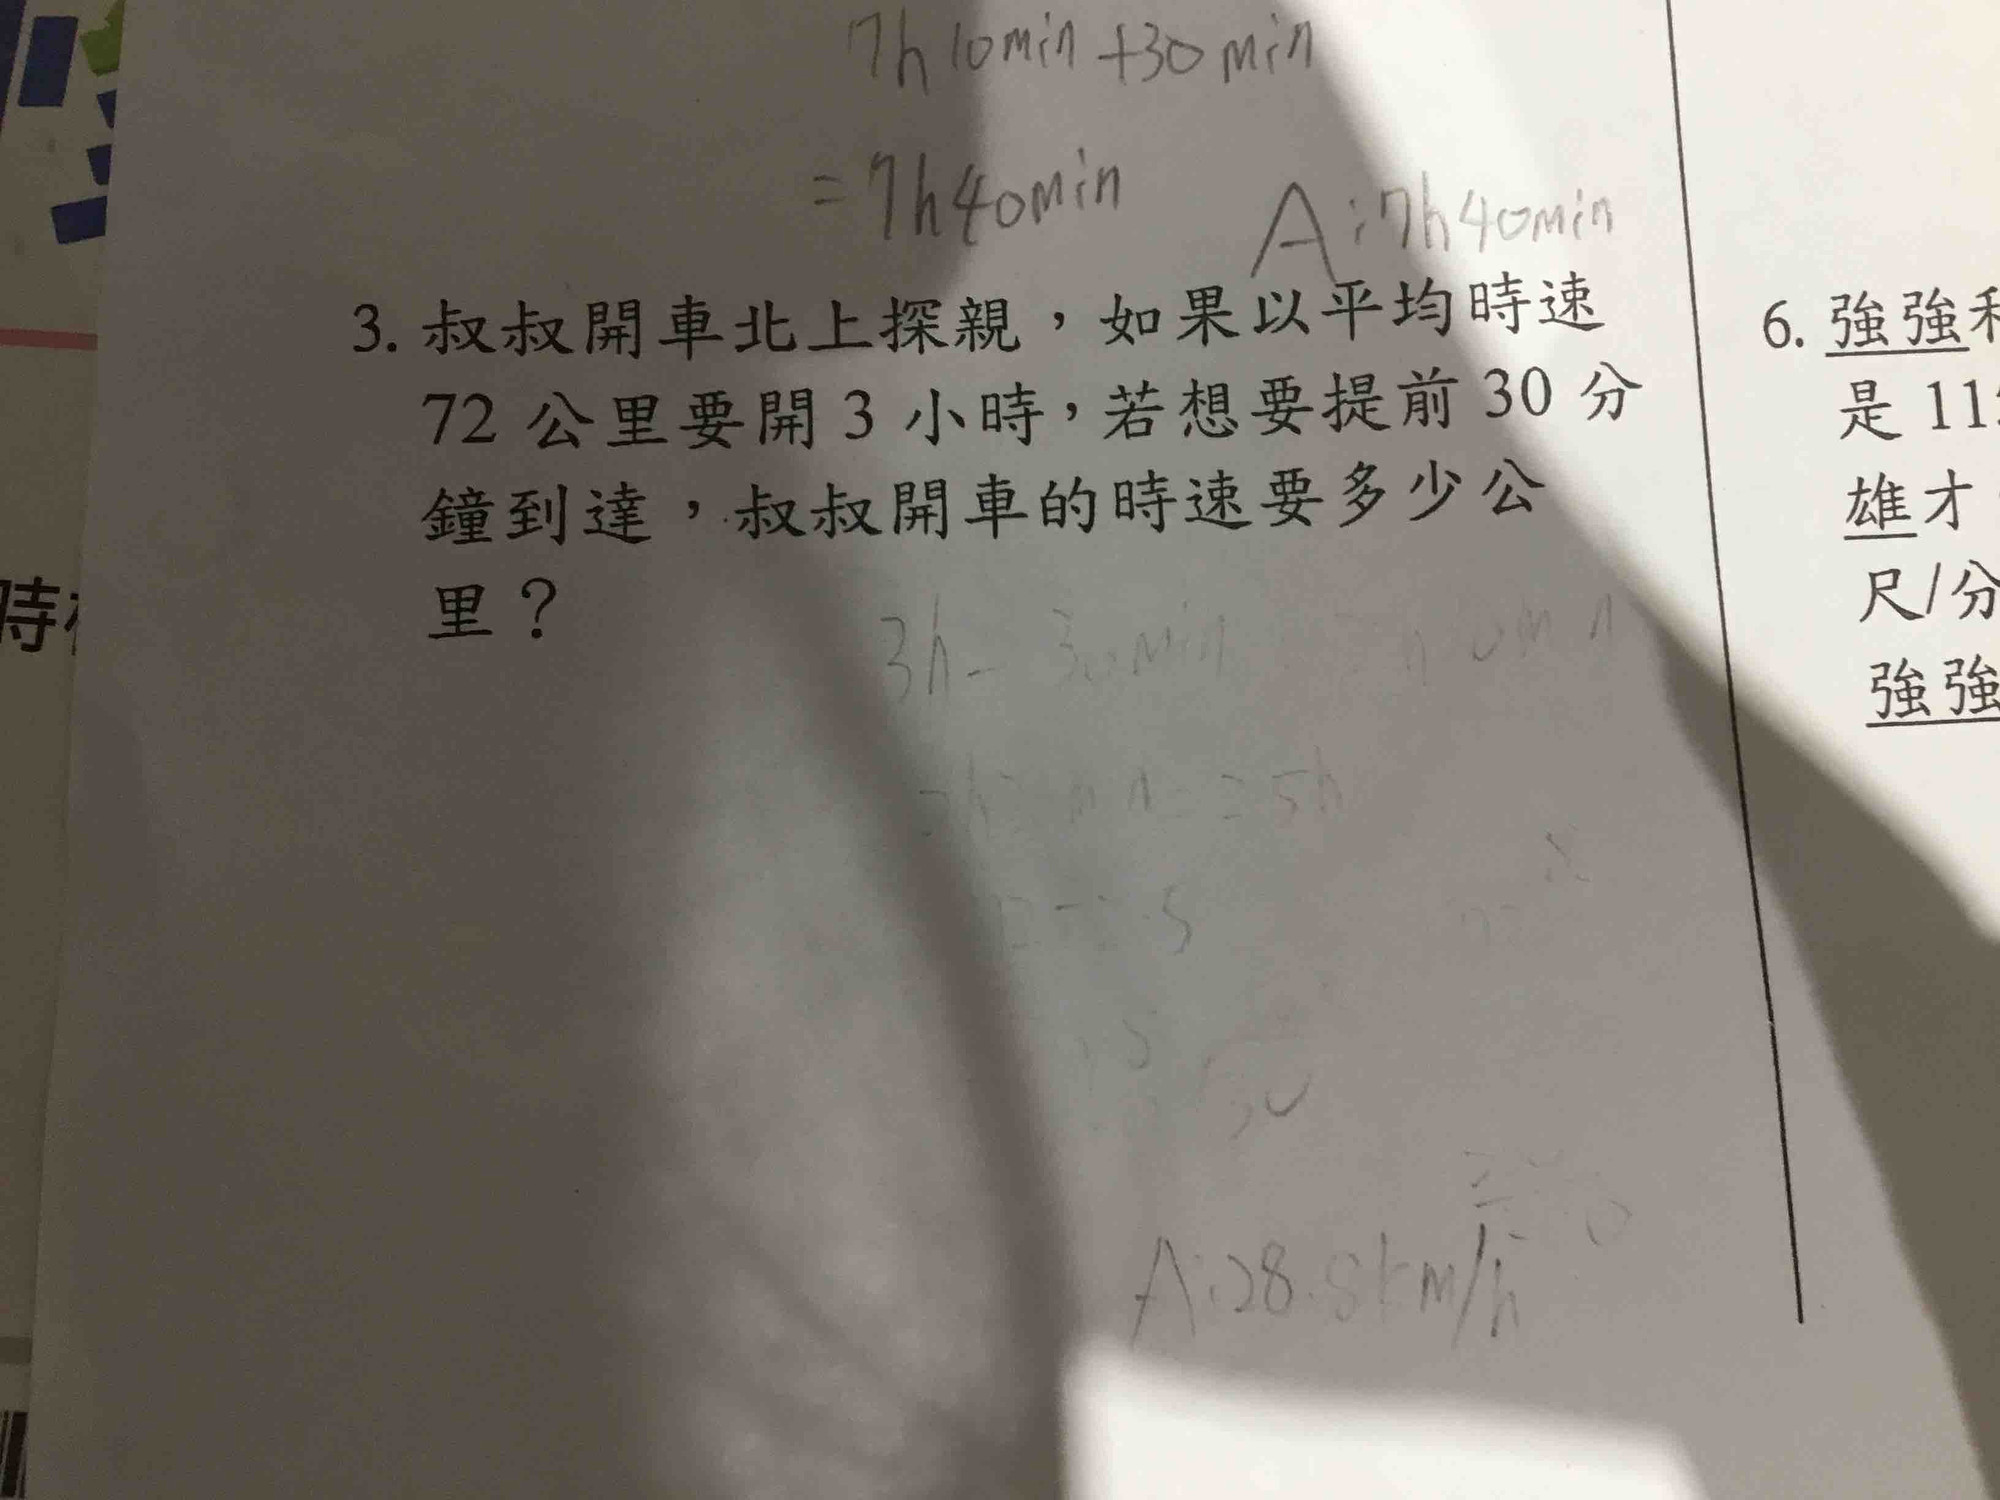 7h10min+30min
=7h40min
A:7h40min
3. 叔叔開車北上探親，如果以平均時速
72 公里要開 3 小時，若想要提前 30 分
鐘到達，叔叔開車的時速要多少公
里？
3h-30min
A:28.8km/h
6. 強強
是 11
雄才
尺/分
強強
時